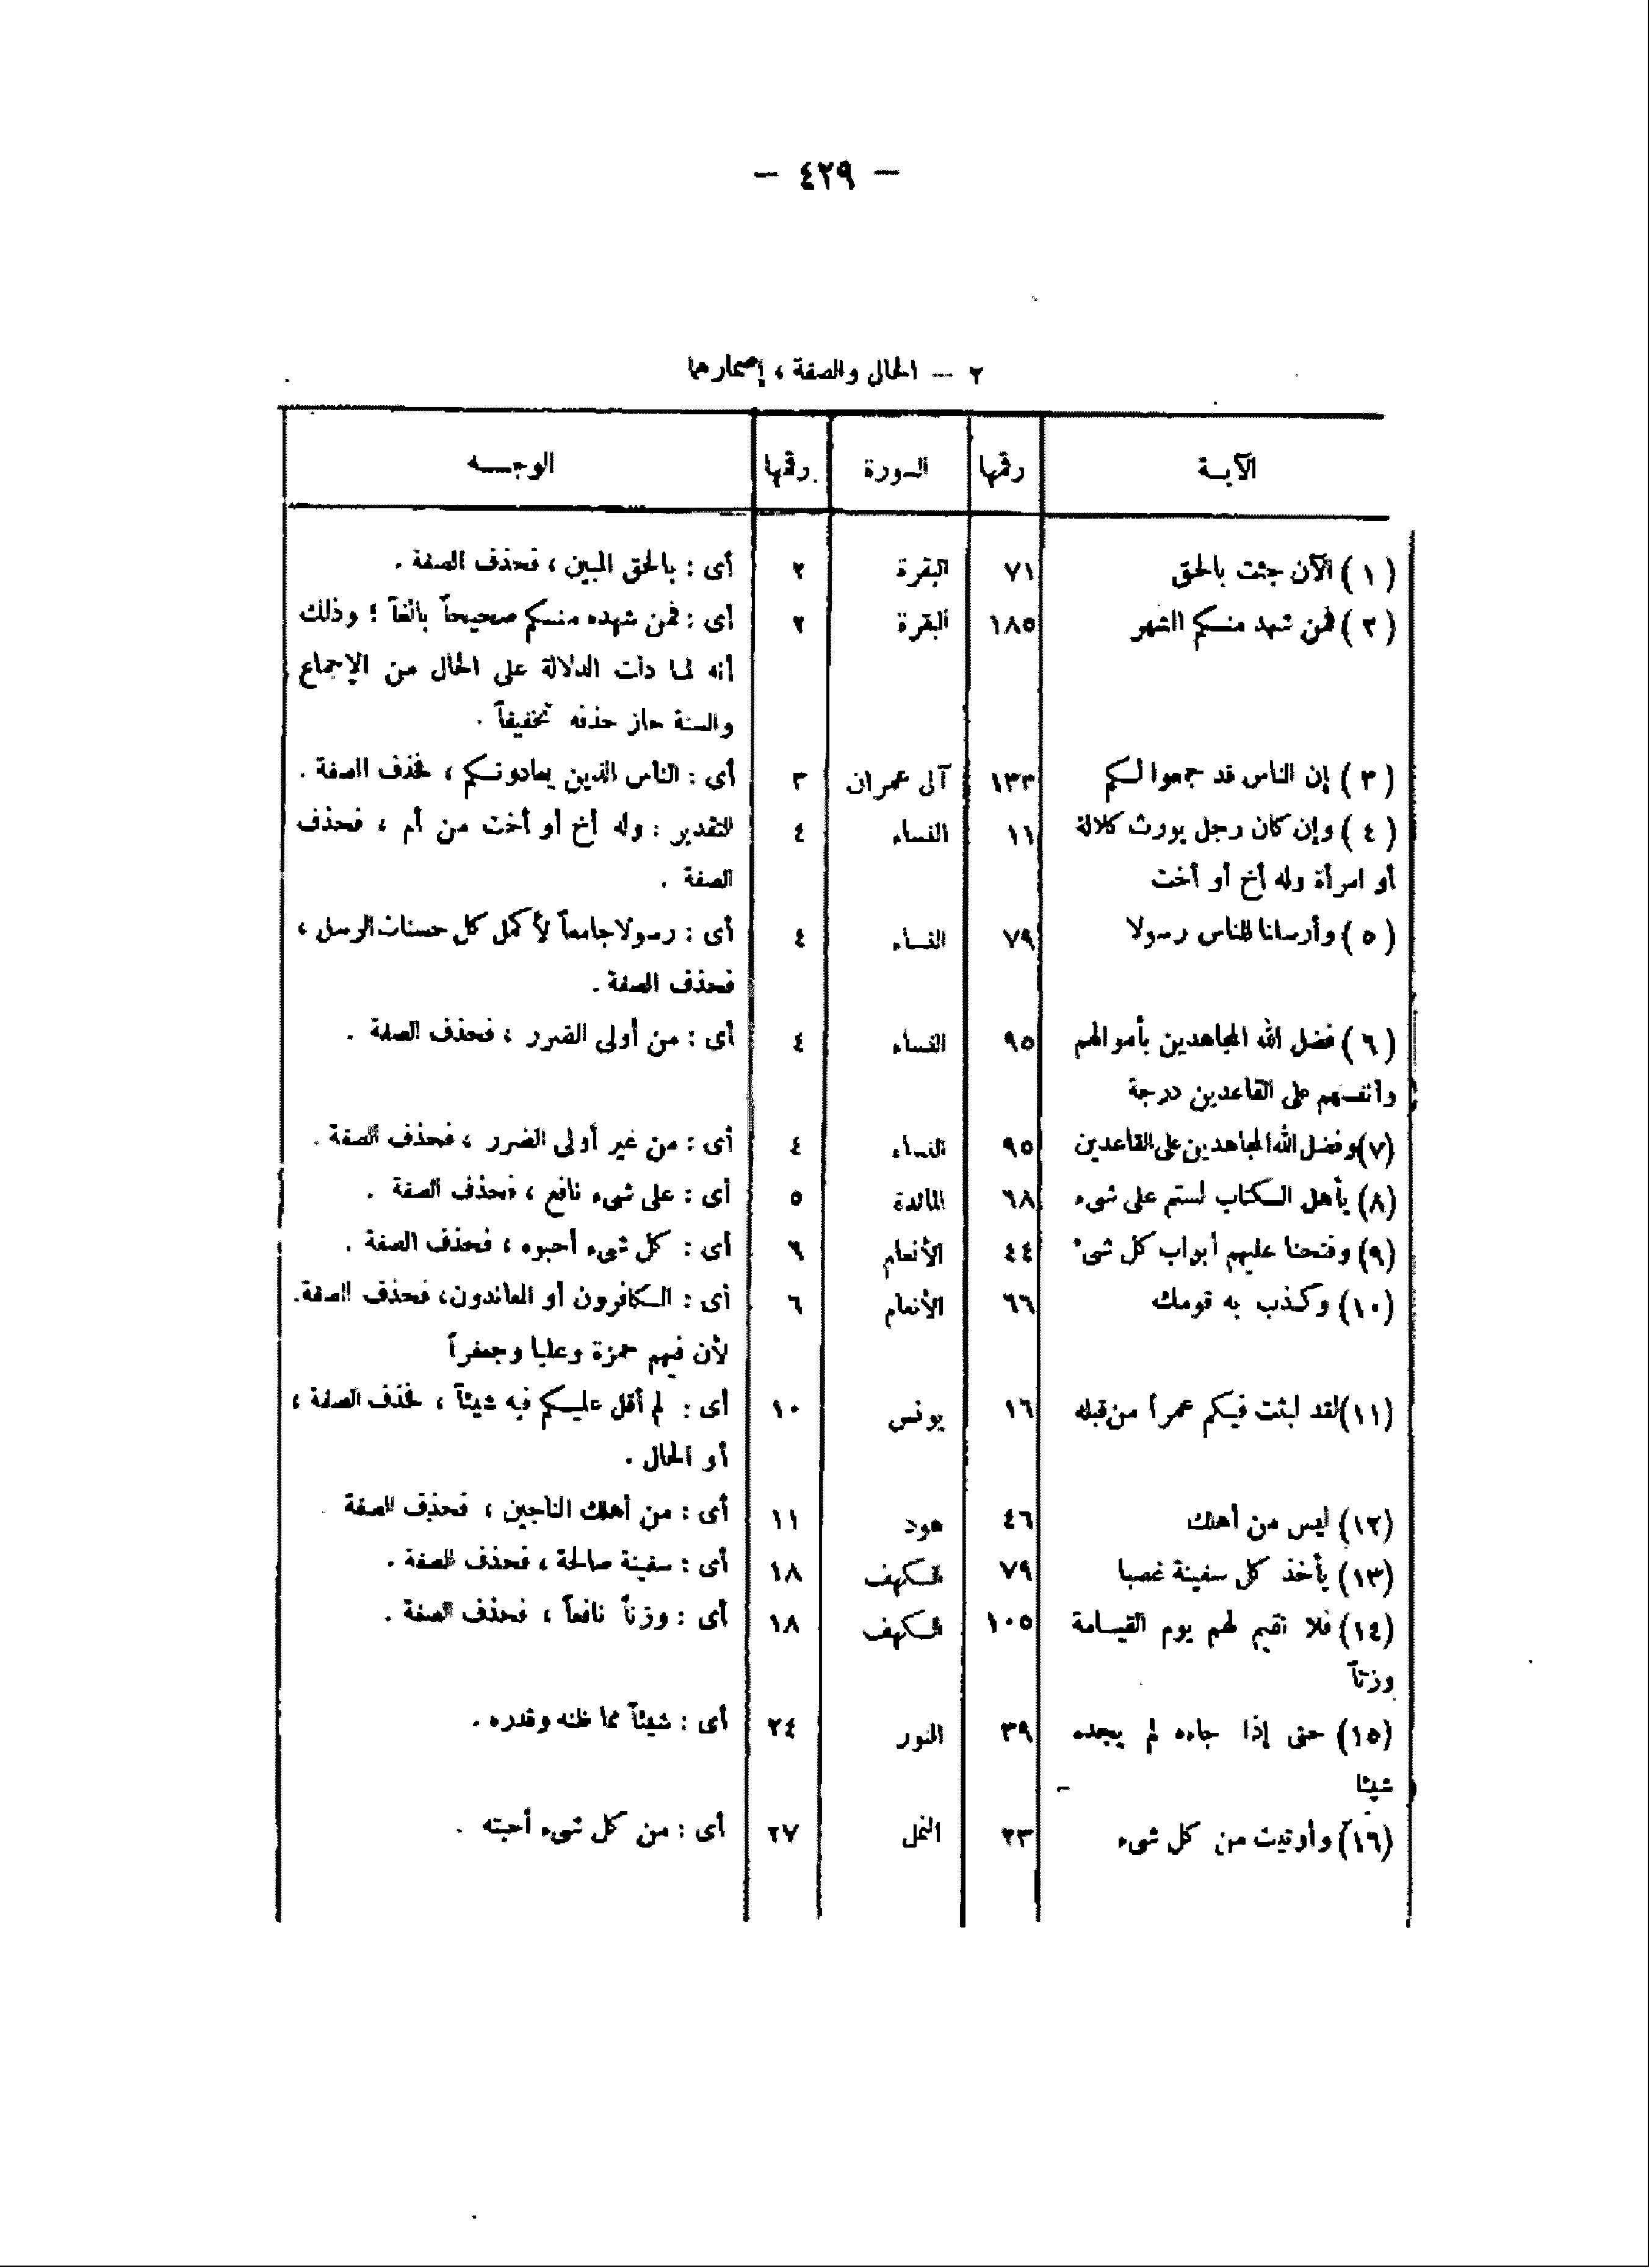 — ٤٢٩ —
٢ — الحال والصفة ، إضمارهما
الآيـة رقمها السورة رقمها الوجـــه
( ١ ) الآن جئت بالحق ٧١ البقرة ٢ أى : بالحق المبين ، فحذف الصفة .
( ٢ ) فمن شهد منكم الشهر ١٨٥ البقرة ٢ أى : فمن شهده منكم صحيحاً بالغاً ؛ وذلك
أنه لما دلت الدلالة على الحال من الإجماع
والسنة جاز حذفه تخفيفاً .
( ٣ ) إن الناس قد جمعوا لكم ١٣٣ آل عمران ٣ أى : الناس الذين يعادونكم ، فحذف الصفة .
( ٤ ) وإن كان رجل يورث كلالة ١١ النساء ٤ التقدير : وله أخ أو أخت من أم ، فحذف
أو امرأة وله أخ أو أخت الصفة .
( ٥ ) وأرسلنا للناس رسولا ٧٩ النساء ٤ أى : رسولا جامعاً لأكمل كل حسنات الرسل ،
فحذف الصفة .
( ٦ ) فضل الله المجاهدين بأموالهم ٩٥ النساء ٤ أى : من أولى الضرر ، فحذف الصفة .
وأنفسهم على القاعدين درجة
(٧) وفضل الله المجاهدين على القاعدين ٩٥ النساء ٤ أى : من غير أولى الضرر ، فحذف الصفة .
(٨) يأهل الكتاب لستم على شىء ٦٨ المائدة ٥ أى : على شىء نافع ، فحذف الصفة .
(٩) وفتحنا عليهم أبواب كل شىء ٤٤ الأنعام ٦ أى : كل شىء أحبوه ، فحذف الصفة .
(١٠) وكذب به قومك ٦٦ الأنعام ٦ أى : الكافرون أو المعاندون، فحذف الصفة.
لأن فيهم حمزة وعليا وجعفراً
(١١) لقد لبثت فيكم عمراً من قبله ١٦ يونس ١٠ أى : لم أقل عليكم فيه شيئاً ، فحذف الصفة ،
أو الحال .
(١٢) ليس من أهلك ٤٦ هود ١١ أى : من أهلك الناجين ، فحذف الصفة
(١٣) يأخذ كل سفينة غصبا ٧٩ الكهف ١٨ أى : سفينة صالحة ، فحذف الصفة .
(١٤) فلا نقيم لهم يوم القيامة ١٠٥ الكهف ١٨ أى : وزناً نافعاً ، فحذف الصفة .
وزناً
(١٥) حتى إذا جاءه لم يجده ٣٩ النور ٢٤ أى : شيئاً مما ظنه وقدره .
شيئا
(١٦) وأوتيت من كل شىء ٢٣ النمل ٢٧ أى : من كل شىء أحبته .